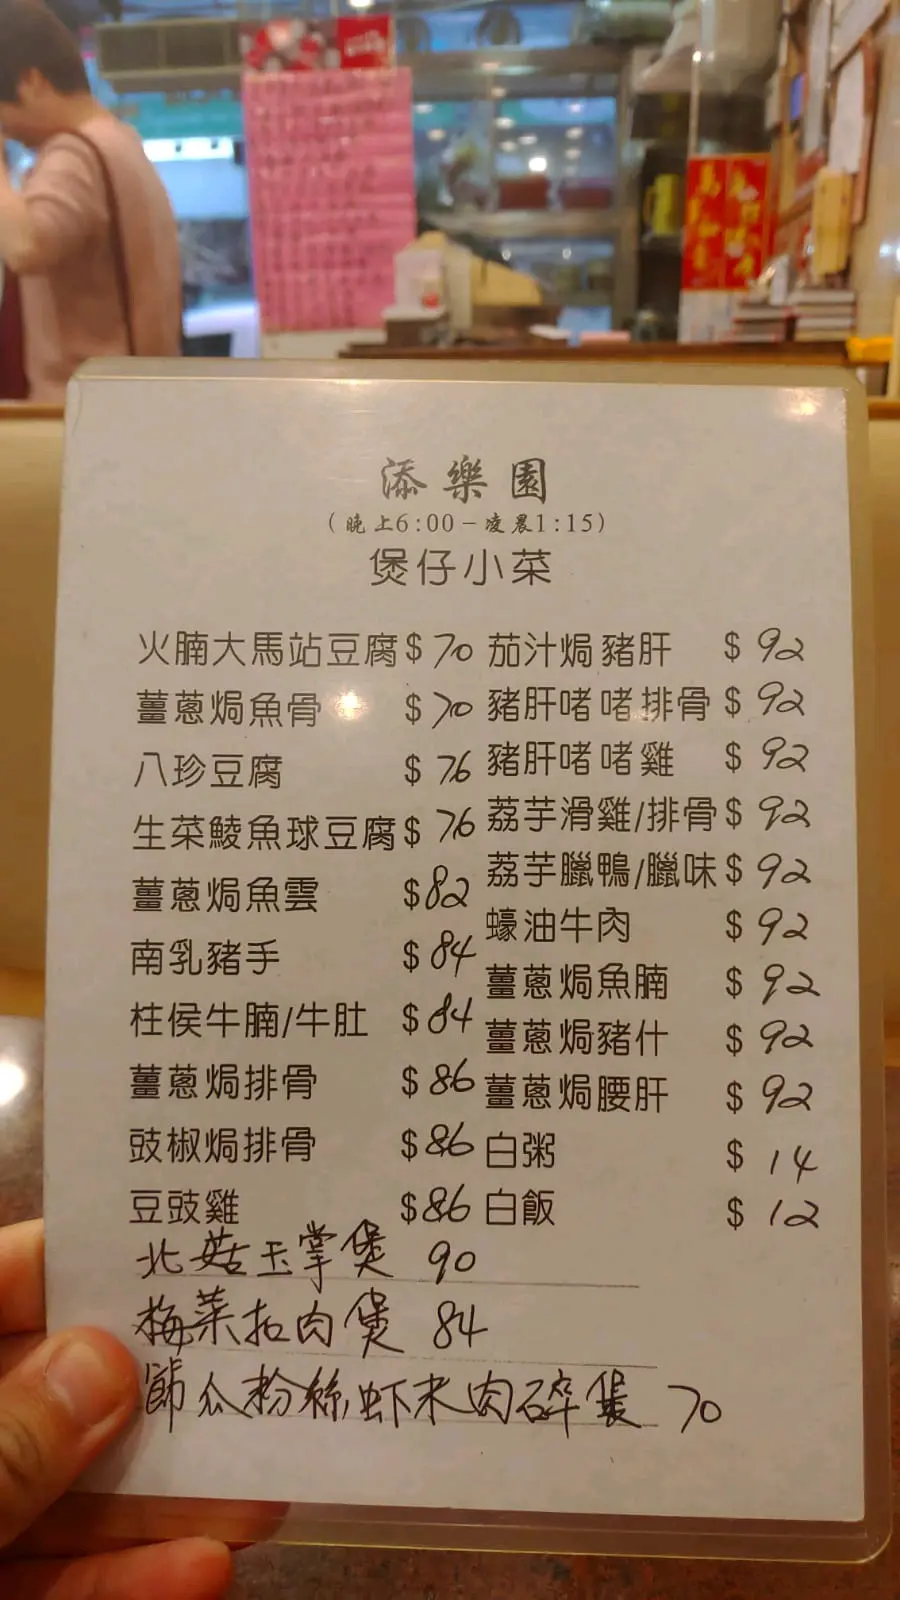 添樂園
(晚上6:00-凌晨1:15)
煲仔小菜
火腩大馬站豆腐 $70
薑蔥焗魚骨 $70
八珍豆腐 $76
生菜鯪魚球豆腐 $76
薑蔥焗魚雲 $82
南乳豬手 $84
柱侯牛腩/牛肚 $84
薑蔥焗排骨 $86
豉椒焗排骨 $86
豆豉雞 $86
茄汁焗豬肝 $92
豬肝啫啫排骨 $92
豬肝啫啫雞 $92
荔芋滑雞/排骨 $92
荔芋臘鴨/臘味 $92
蠔油牛肉 $92
薑蔥焗魚腩 $92
薑蔥焗豬什 $92
薑蔥焗腰肝 $92
白粥 $14
白飯 $12
北菇玉掌煲 90
梅菜扣肉煲 84
節瓜粉絲虾米肉碎煲 70